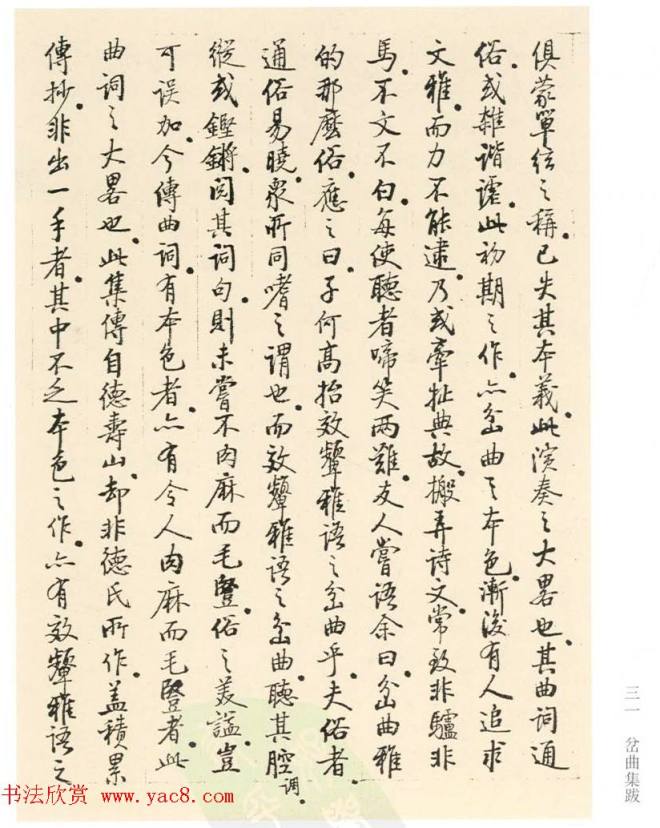 俱蒙單弦之稱。已失其本義。此演奏之大畧也。其曲詞通
俗。或雜諧謔。此初期之作。亦岔曲之本色。漸後有人追求
文雅。而力不能逮。乃或牽扯典故。搬弄詩文。常致非驢非
馬。不文不白。每使聽者啼笑兩難。友人嘗語余曰。岔曲雅
的那麼俗。應之曰。子何高抬效顰雅語之岔曲乎。夫俗者。
通俗易曉。衆所同嗜之謂也。而效顰雅語之岔曲。聽其腔調。
縱或鏗鏘。閱其詞句。則未嘗不肉麻而毛豎。俗之美謚。豈
可誤加。今傳曲詞。有本色者。亦有令人肉麻而毛豎者。此
曲詞之大畧也。此集傳自德壽山。却非德氏所作。蓋積累
傳抄。非出一手者。其中不乏本色之作。亦有效顰雅語之
三一 岔曲集跋
书法欣赏 www.yac8.com